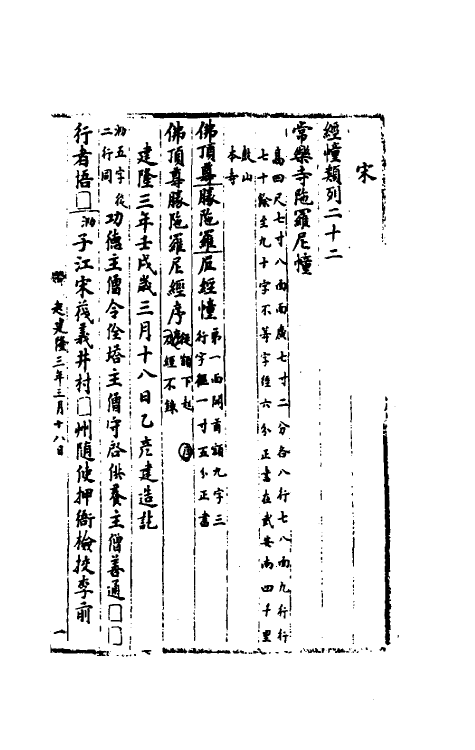 宋
經幢類列二十二
常樂寺陁羅尼幢
高四尺七寸八面面廣七寸二分各八行七八面九行行
七十餘至九十字不等字徑六分正書在武安南四十里
鼓山
本寺
佛頂尊勝陁羅尼經幢
第一面開首額九字三
行字徑一寸五分正書
佛頂尊勝陁羅尼經序
從額下起
經不錄
建隆三年壬戌歲三月十八日乙彦建造訖
湖五字後
二行同
功德主僧令佺塔主僧守啓供養主僧善通□□
行者悟□
湖
子江宋義井村□州隨使押衙檢校李前
建隆三年三月十八日
一